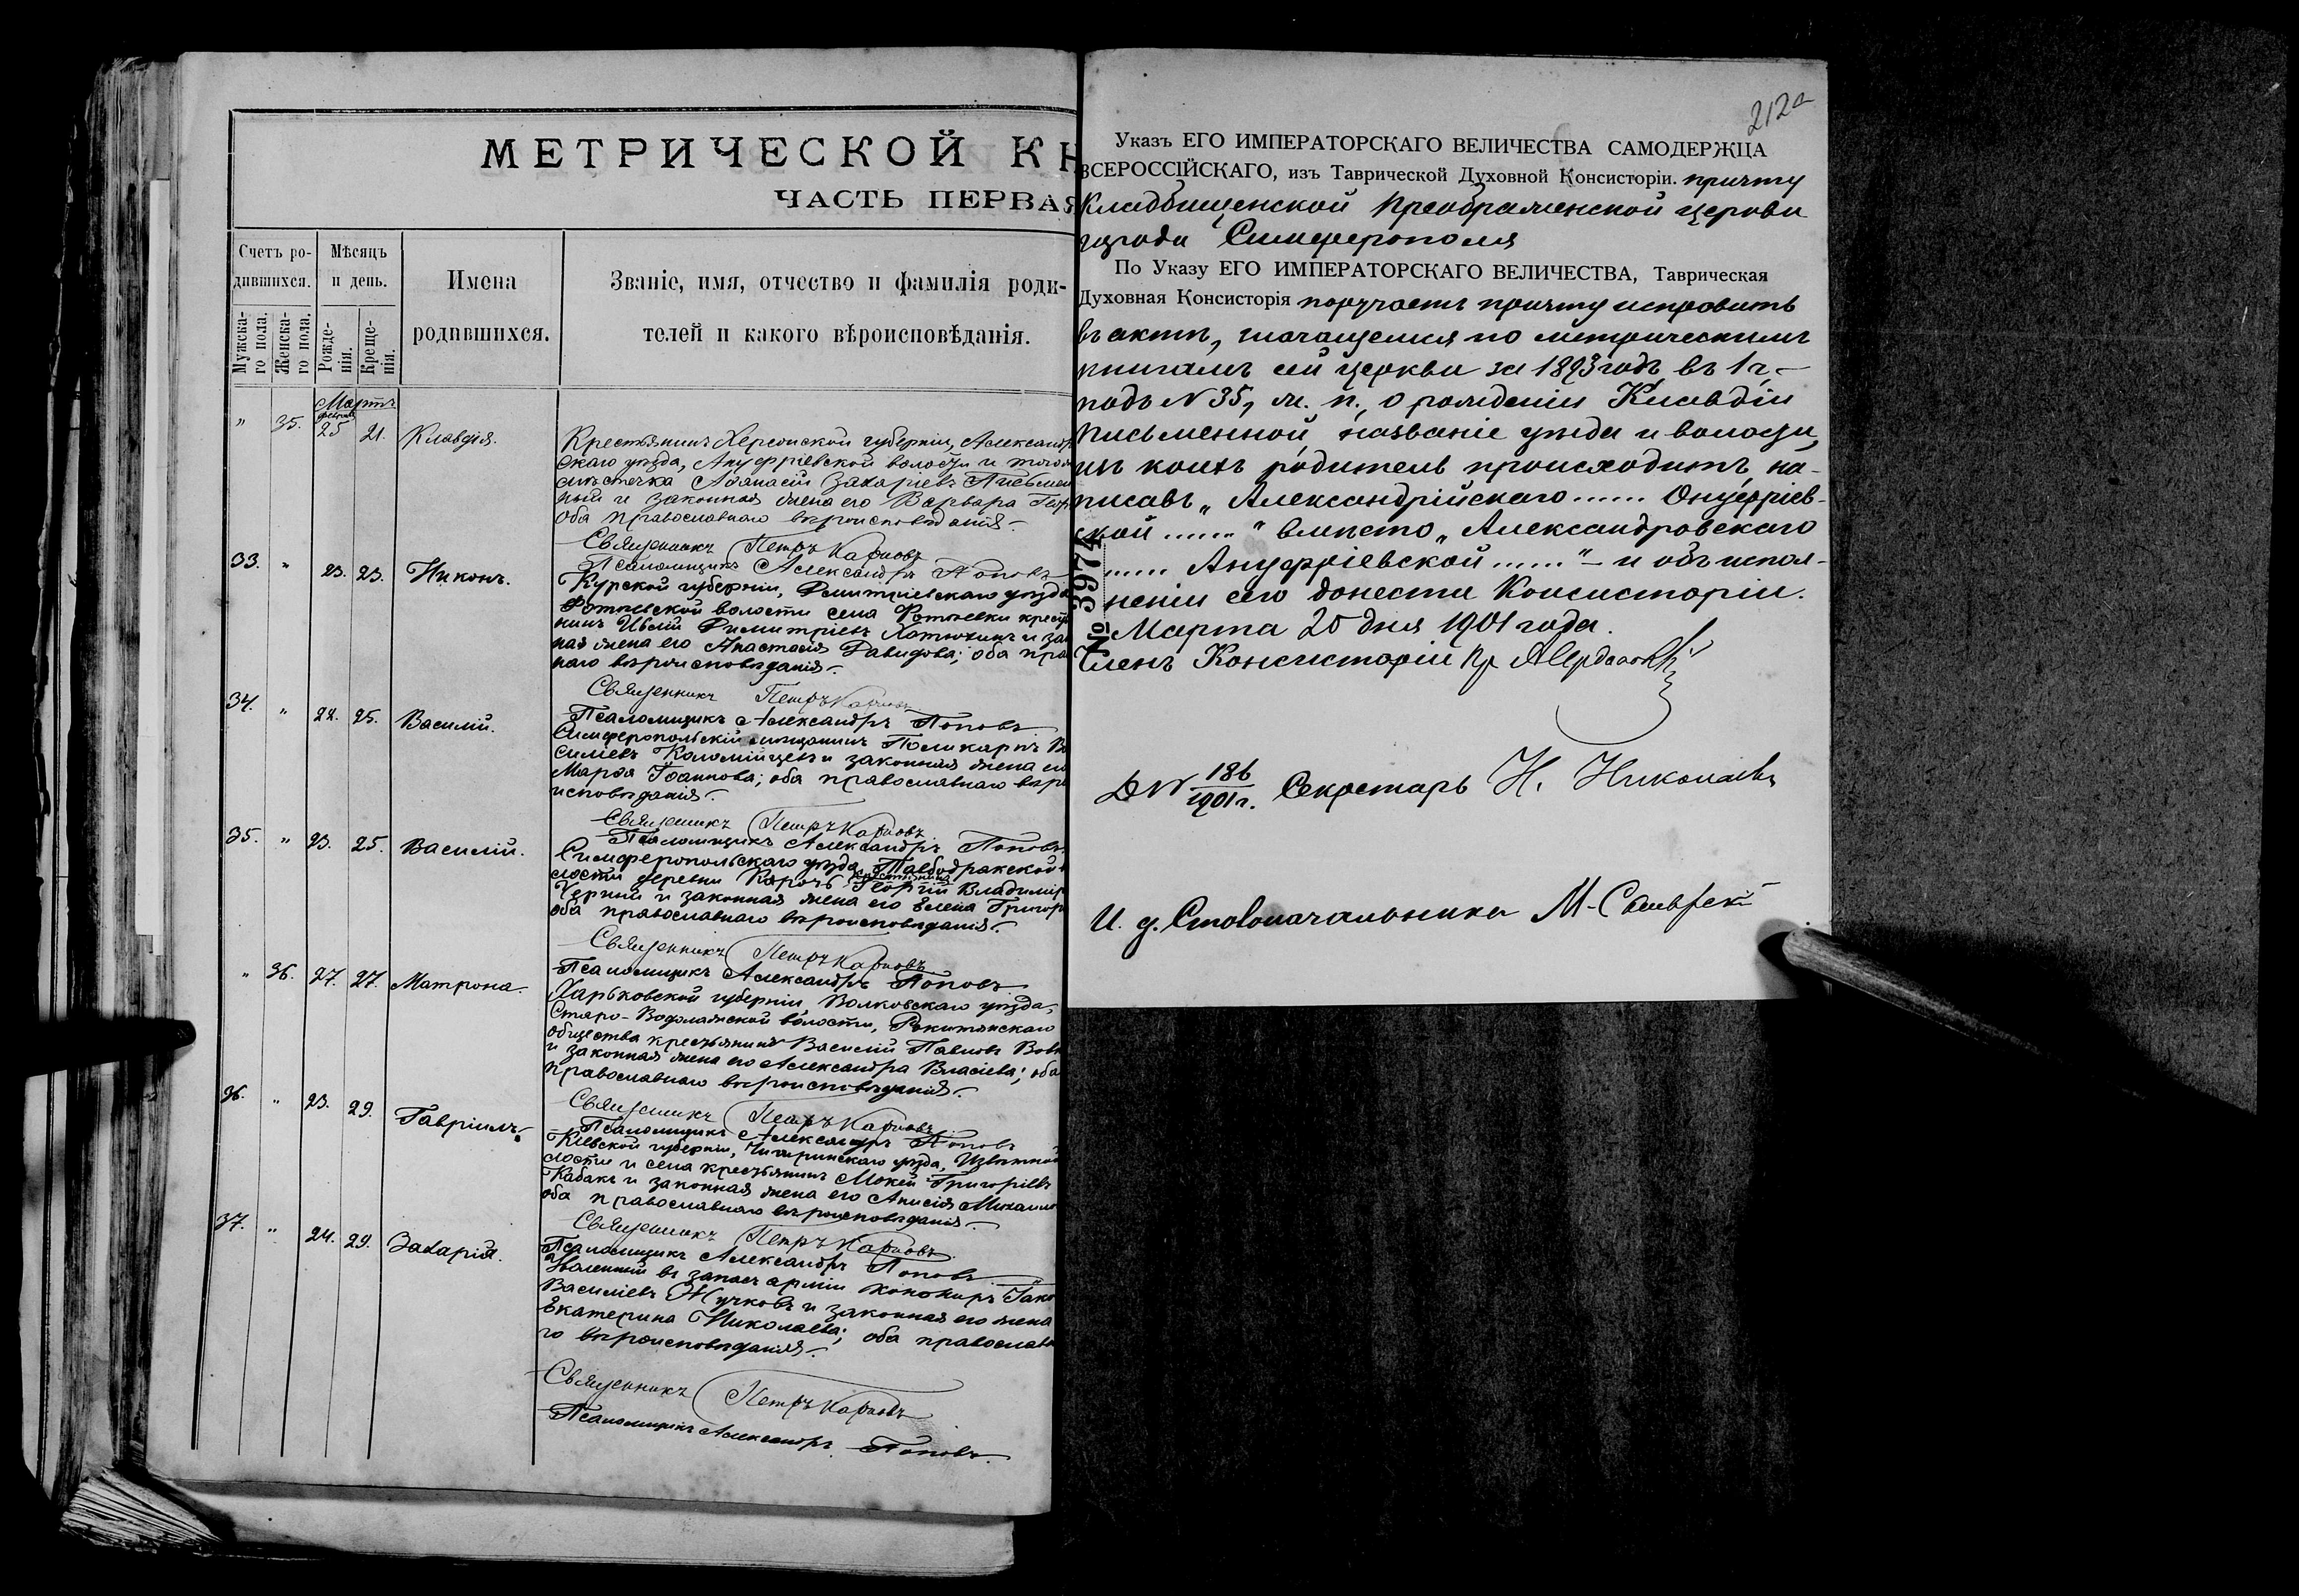 МЕТРИЧЕСКОЙ КН
ЧАСТЬ ПЕРВАЯ
Счетъ ро-
дившихся.
Мужска-
го пола.
Женска-
го пола.
Мѣсяцъ
и день.
Рожде-
нія.
Креще-
нія.
Имена
родившихся.
Званіе, имя, отчество и фамилія роди-
телей и какого вѣроисповѣданія.
Мартъ
феврал
" 35. 25 21. Клавдія.
Крестьянинъ Херсонской губерніи, Александр
скаго уѣзда, Ануфріевской волости и того
мѣстечка Аѳанасій Захаріевъ Письмен
ный и законная жена его Варвара Геор
оба православнаго вѣроисповѣданія.
Священникъ Петръ Карповъ
Псаломщикъ Александръ Поповъ
33. " 23. 23. Никонъ.
Курской губерніи, Дмитріевскаго уѣзда
волости села крест
нинъ Димитріевъ и зак
ная жена его Анастасія Давидова; оба пра
наго вѣроисповѣданія.
Священникъ Петръ Карповъ
Псаломщикъ Александръ Поповъ
34. " 22. 25. Василій.
Симферопольскій мѣщанинъ Поликарпъ Ва
силіевъ Коломійцевъ и законная жена его
Марѳа Іоаннова; оба православнаго вѣро
исповѣданія.
Священникъ Петръ Карповъ
Псаломщикъ Александръ Поповъ
35. " 23. 25. Василій.
Симферопольскаго уѣзда,
лости деревни Георгій Владимір
Черный и законная жена его Елена Григор
оба православнаго вѣроисповѣданія.
Священникъ Петръ Карповъ
Псаломщикъ Александръ Поповъ
" 36. 27. 27. Матрона.
Харьковской губерніи Волковскаго уѣзда,
Старо-Водолажской волости, Ракитянскаго
общества крестьянинъ Василій Павловъ Вовк
и законная жена его Александра Власіева; оба
православнаго вѣроисповѣданія.
Священникъ Петръ Карповъ
Псаломщикъ Александръ Поповъ
36. " 23. 29. Гавріилъ.
Кіевской губерніи, Чигиринскаго уѣзда,
лости и села крестьянинъ Мокей Григоріевъ
Кабакъ и законная жена его Анисія Михаило
оба православнаго вѣроисповѣданія.
Священникъ Петръ Карповъ
Псаломщикъ Александръ Поповъ
37. " 24. 29. Захарія.
Уволенный въ запасъ арміи Іако
Василіевъ Жучковъ и законная его жена
Екатерина Николаева; оба православна
го вѣроисповѣданія.
Священникъ Петръ Карповъ
Псаломщикъ Александръ Поповъ.
212а
Указъ ЕГО ИМПЕРАТОРСКАГО ВЕЛИЧЕСТВА САМОДЕРЖЦА
ВСЕРОССІЙСКАГО, изъ Таврической Духовной Консисторіи. причту
Кладбищенской Преображенской церкви
города Симферополя
По Указу ЕГО ИМПЕРАТОРСКАГО ВЕЛИЧЕСТВА, Таврическая
Духовная Консисторія поручаетъ причту исправить
въ актѣ, значащемся по метрическимъ
книгамъ сей церкви за 1893 годъ въ 1 ч,-
подъ № 35, ж. п., о рожденіи Клавдіи
Письменной, названіе уѣзда и волости,
изъ коихъ родитель происходитъ, на-
писавъ „Александрійскаго...... Онуфріев-
ской......" вмѣсто „Александровскаго
...... Ануфріевской......" – и объ испол-
неніи сего донести Консисторіи.
№ 3974
Марта 20 дня 1901 года.
Членъ Консисторіи Пр.
Д № 186/1901 г. Секретарь Н. Николаевъ
И. д. Столоначальника М.